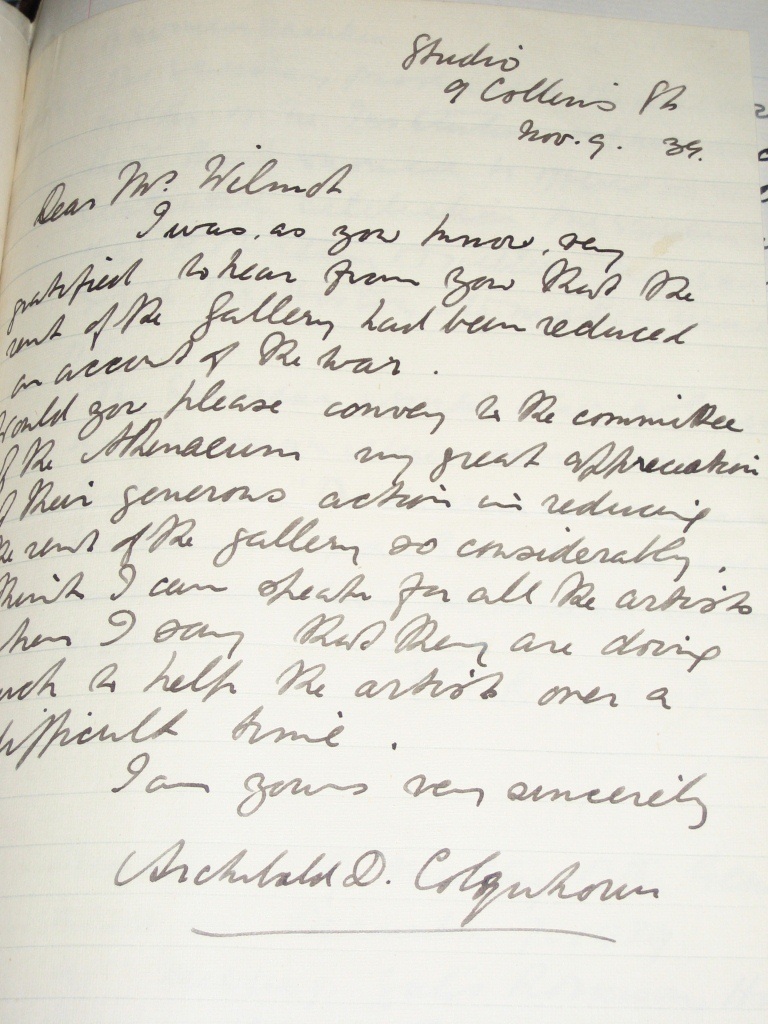 Studio
9 Collins St
Nov. 9. 39.
Dear Mr. Wilmot
I was, as you know, very
gratified to hear from you that the
rent of the gallery had been reduced
on account of the war.
Would you please convey to the committee
of the Athenaeum my great appreciation
of their generous action in reducing
the rent of the gallery so considerably.
think I can speak for all the artists
when I say that they are doing
much to help the artist over a
difficult time.
I am yours very sincerely
Archibald D. Colquhoun